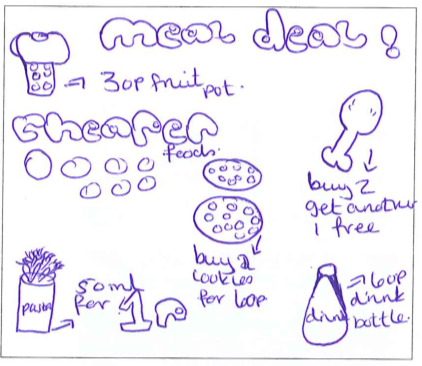 meal deal !
→ 30p fruit pot.
cheaper
foods.
buy 2
get another
1 free
buy 2
cookies
for 60p
pasta
50ml
for
1p
drink
→ 60p
drink
bottle.